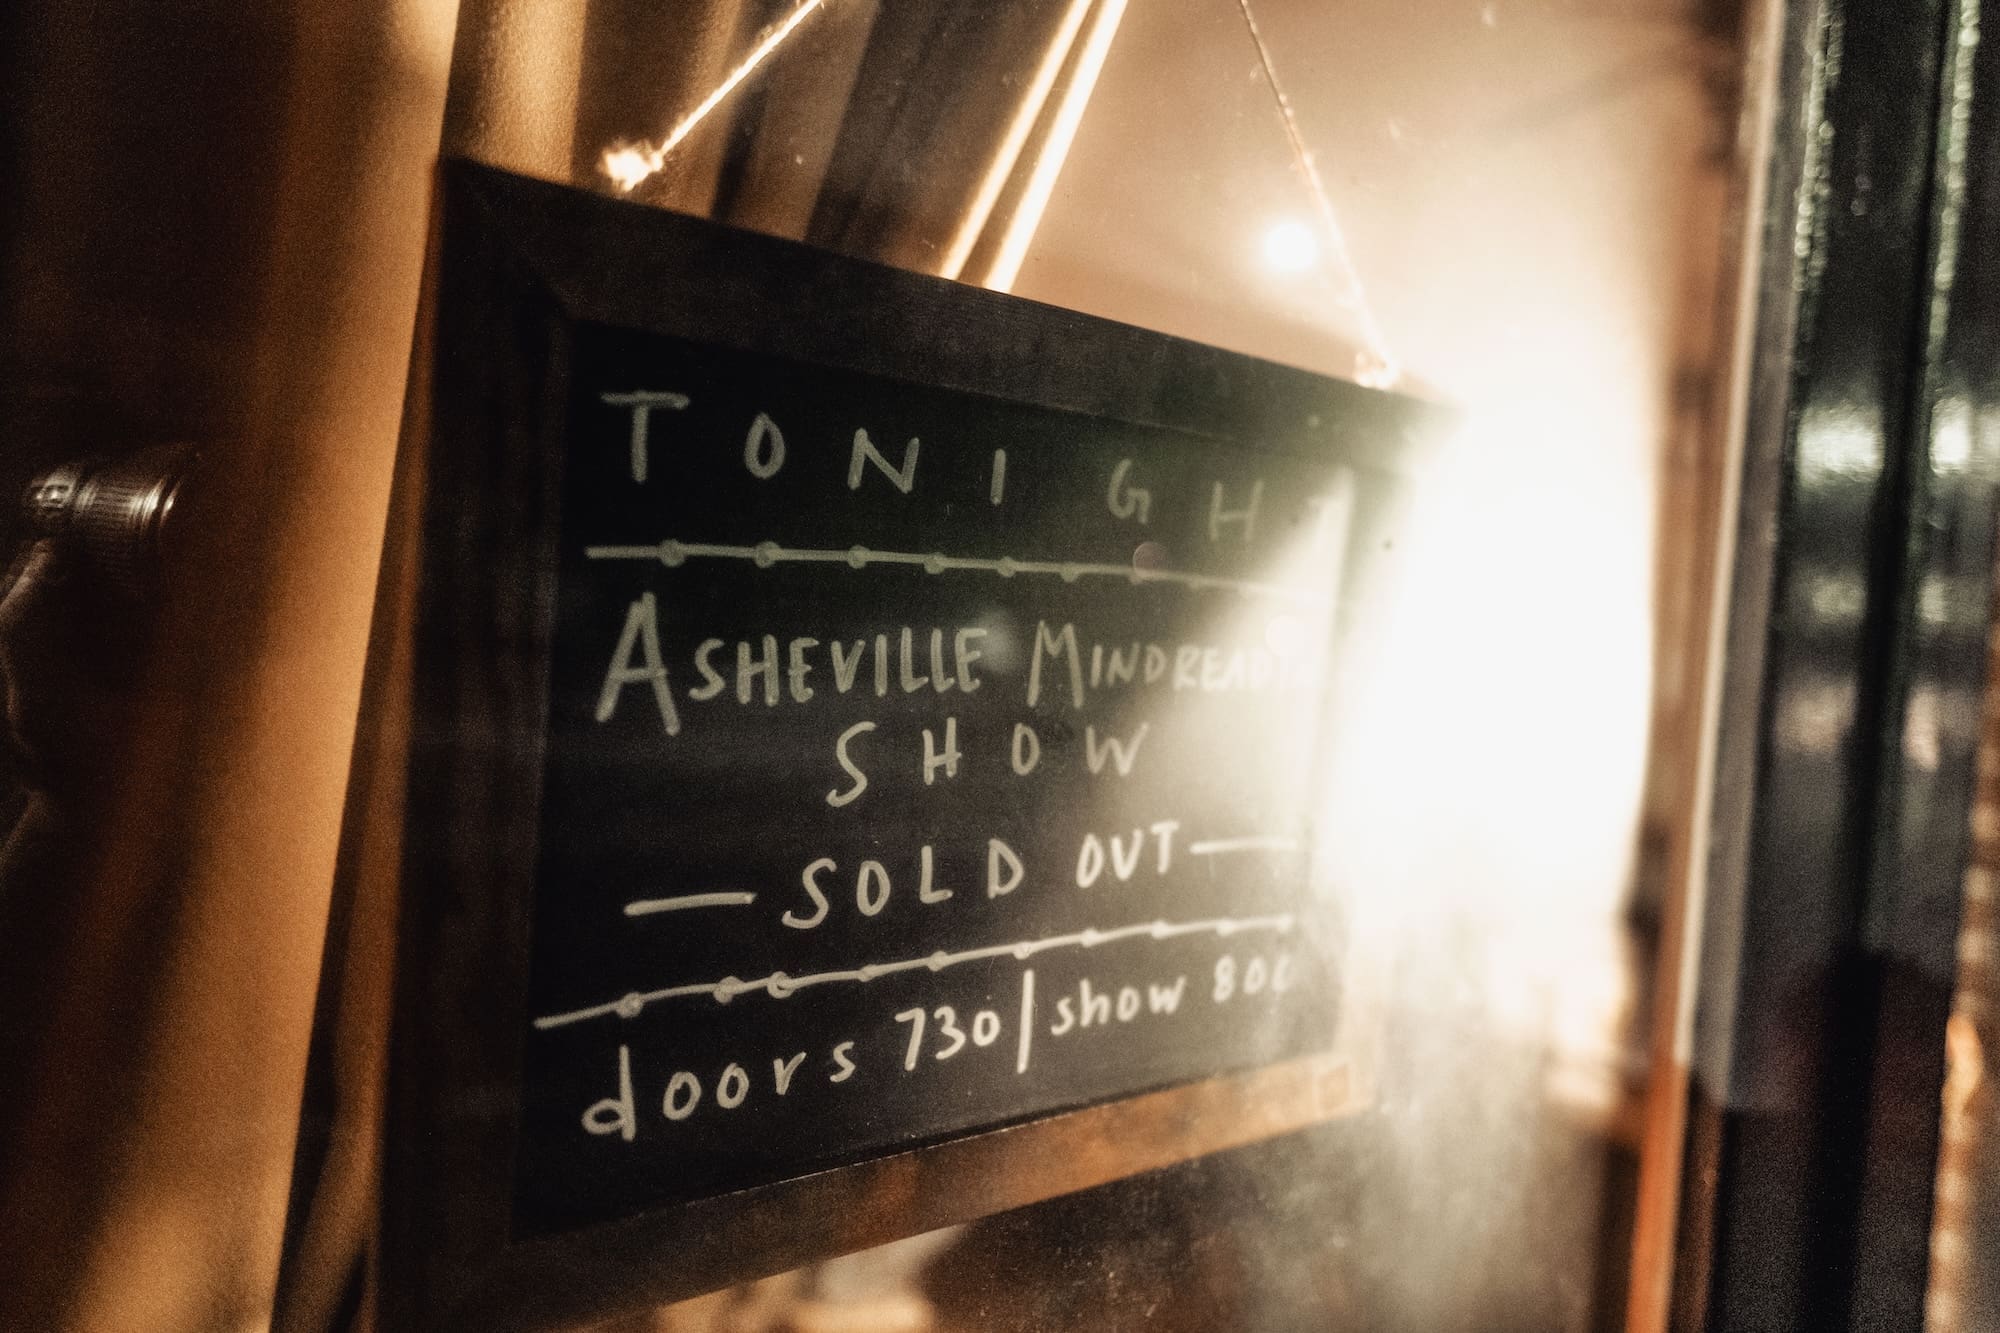 TONIGH
ASHEVILLE
SHOW
— SOLD OUT —
doors 730 | show 800